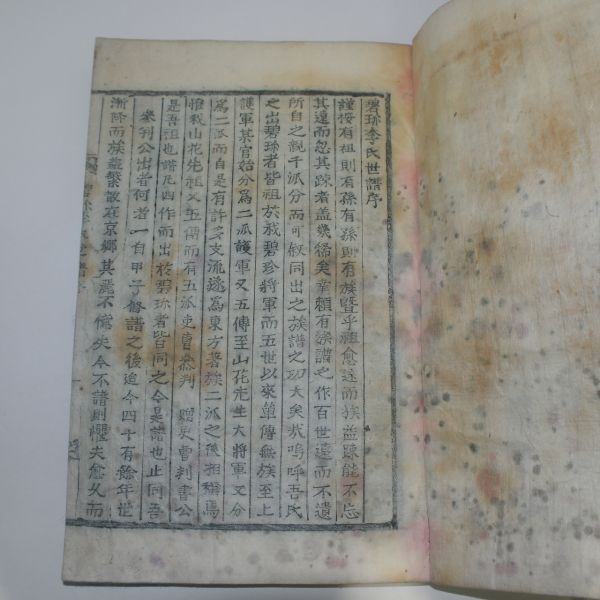 碧珍李氏世譜序
謹按有祖則有孫有孫則有族曁乎祖愈遠而族益踈能不忘
其遠而忽其踈者盖幾稀矣幸賴有族譜之作百世遠而不遺
所自之親千派分而可敍同出之族譜之功大矣哉嗚呼吾氏
之出碧珍者皆祖於我碧珍將軍而五世以來單傳無族至上
護軍某官始分爲二派護軍又五傳至山花先生大將軍又分
爲二派而自是有許多支流遂爲東方著族二派之後相稱焉
惟我山花先祖又五傳而有五派吏曹叅判贈吏曹判書公
是吾祖也譜凡四作而出於碧珍者皆同之今是譜也止同吾
叅判公出者何者一自甲子修譜之後迨今四十有餘年世
漸降而族益繁散在京鄉其麗不億失今不譜則懼夫愈久而